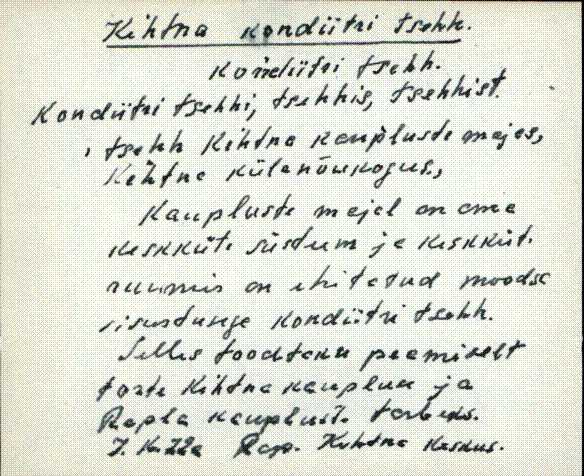 Kehtna kondiitri tsehh.
kondiitri tsehh.
Kondiitri tsehhi, tsehhis, tsehhist.
, tsehh Kehtna kaupluste majas,
Kehtna külanõukogus.,
Kaupluste majal on oma
keskküte süsteem ja keskküt.
ruumis on ehitatud moodsa
sisustusega kondiitri tsehh.
Selles toodetakse peamiselt
torte Kehtna kaupluse ja
Rapla kaupluste tarbeks.
J. Rap. Kehtna keskus.